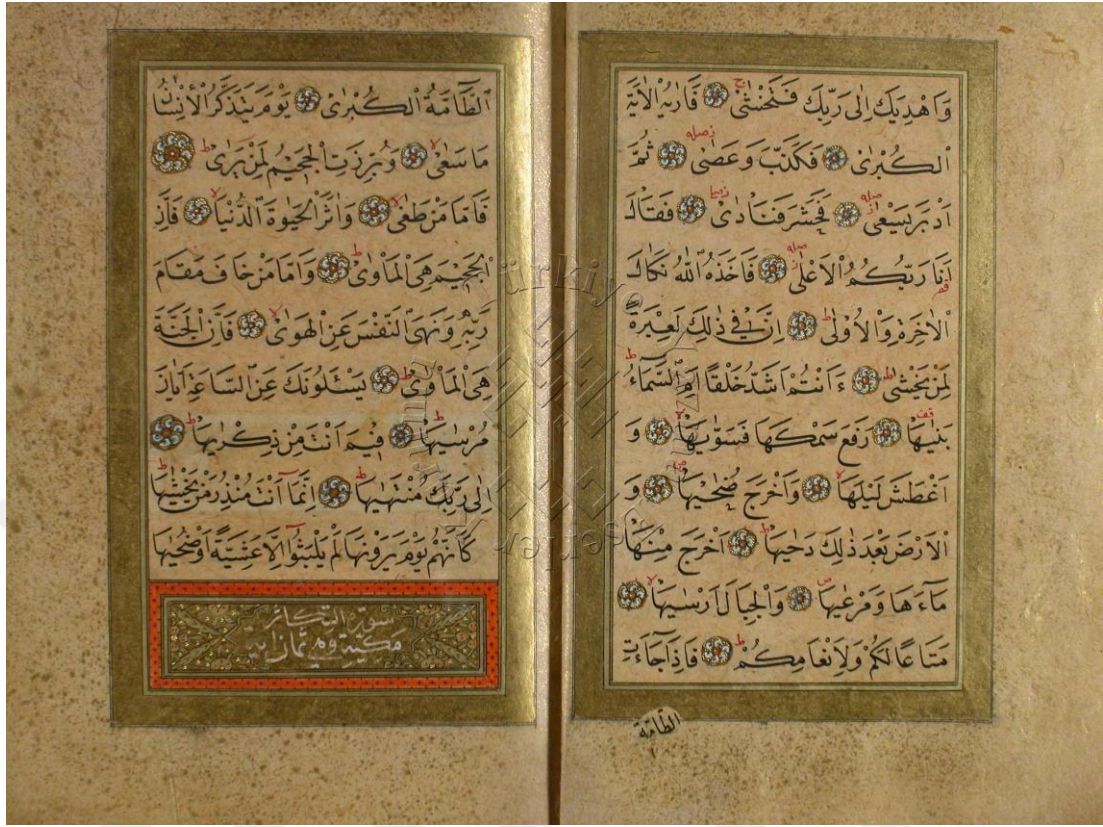 وَاَهْدِيَكَ اِلٰى رَبِّكَ فَتَخْشٰىۚ فَاَرٰيهُ الْاٰيَةَ
الْكُبْرٰى فَكَذَّبَ وَعَصٰى ثُمَّ
اَدْبَرَ يَسْعٰى فَحَشَرَ فَنَادٰى فَقَالَ
اَنَا رَبُّكُمُ الْاَعْلٰى فَاَخَذَهُ اللّٰهُ نَكَالَ
الْاٰخِرَةِ وَالْاُولٰى اِنَّ فٖى ذٰلِكَ لَعِبْرَةً
لِمَنْ يَخْشٰى ءَاَنْتُمْ اَشَدُّ خَلْقًا اَمِ السَّمَٓاءُ
بَنٰيهَا رَفَعَ سَمْكَهَا فَسَوّٰيهَا وَ
اَغْطَشَ لَيْلَهَا وَاَخْرَجَ ضُحٰيهَا وَ
الْاَرْضَ بَعْدَ ذٰلِكَ دَحٰيهَا اَخْرَجَ مِنْهَا
مَٓاءَهَا وَمَرْعٰيهَا وَالْجِبَالَ اَرْسٰيهَا
مَتَاعًا لَكُمْ وَلِاَنْعَامِكُمْ فَاِذَا جَٓاءَتِ
الطَّامَّةُ
الطَّٓامَّةُ الْكُبْرٰى يَوْمَ يَتَذَكَّرُ الْاِنْسَانُ
مَا سَعٰى وَبُرِّزَتِ الْجَحٖيمُ لِمَنْ يَرٰى
فَاَمَّا مَنْ طَغٰى وَاٰثَرَ الْحَيٰوةَ الدُّنْيَا فَاِنَّ
الْجَحٖيمَ هِىَ الْمَاْوٰى وَاَمَّا مَنْ خَافَ مَقَامَ
رَبِّهٖ وَنَهَى النَّفْسَ عَنِ الْهَوٰى فَاِنَّ الْجَنَّةَ
هِىَ الْمَاْوٰى يَسْـَٔلُونَكَ عَنِ السَّاعَةِ اَيَّانَ
مُرْسٰيهَا فٖيمَ اَنْتَ مِنْ ذِكْرٰيهَا
اِلٰى رَبِّكَ مُنْتَهٰيهَا اِنَّمَٓا اَنْتَ مُنْذِرُ مَنْ يَخْشٰيهَا
كَاَنَّهُمْ يَوْمَ يَرَوْنَهَا لَمْ يَلْبَثُٓوا اِلَّا عَشِيَّةً اَوْ ضُحٰيهَا
سورة التكاثر
مكية وهي ثمان اية
Türkiye